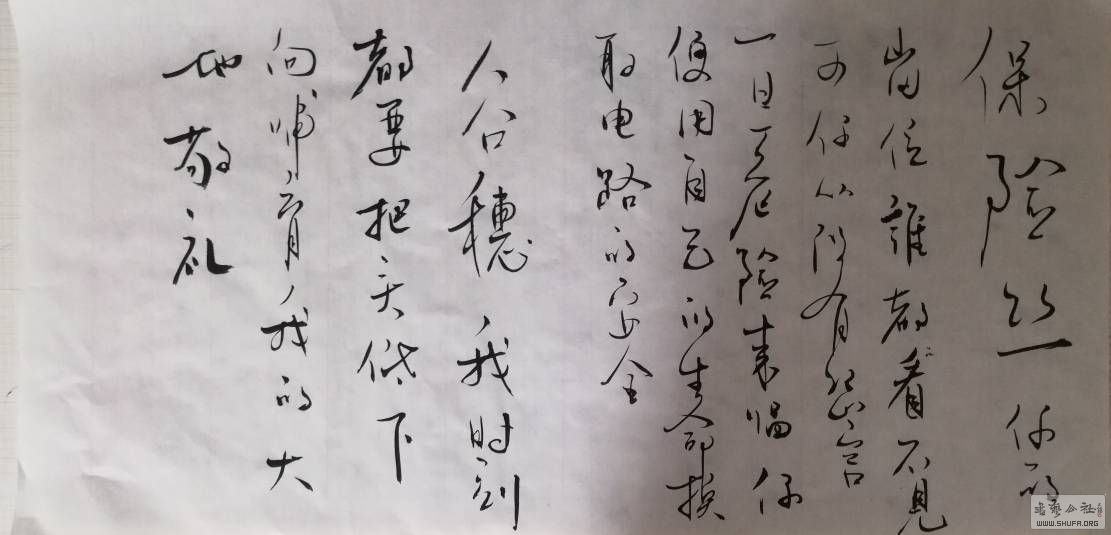 保险丝 你的
岗位誰都看不見
可你从没有怨言
一旦危险来临 你
便用自己的生命换
取电路的安全
谷穗 我时刻
都要把头低下
向哺育我的大
地敬礼
书艺公社
WWW.SHUFA.ORG